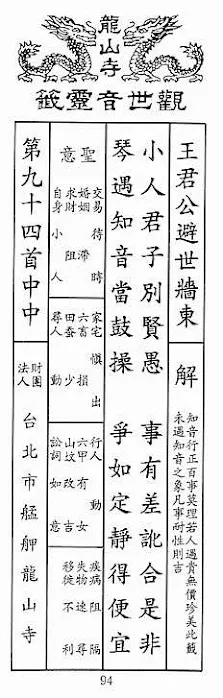 龍山寺
觀世音靈籤
王君公避世牆東
解
知音行正百事莫理若人遇貴無價珍美此籤
未遇知音之象凡事耐性則吉
小人君子別賢愚　事有差訛合是非
琴遇知音當鼓操　爭如定靜得便宜
聖意
交易待時
婚姻滯
求財阻
自身小人
家宅慎出
六畜損
田蚕少
尋人動
行人動
六甲有女
山坟改吉
訟詞如意
疾病阻隔
失物速尋
移徙不利
第九十四首中中
財團法人台北市艋舺龍山寺
94